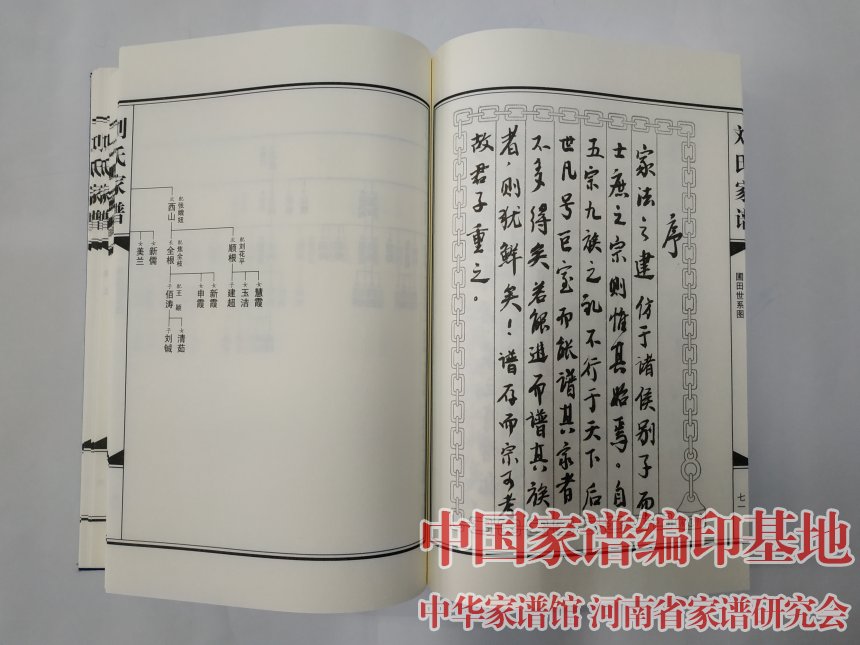 刘氏家谱
圃田世系图
七一
序
家法之建仿于诸侯别子而
士庶之宗则惟其始焉。自
五宗九族之礼不行于天下后
世凡号巨室而能谱其家者
不多得矣若能进而谱其族
者，则犹鲜矣！谱存而宗可考
故君子重之。
刘氏家谱
配张嫒妞
三 西山
配刘花平
三 顺根
配焦金枝
长 全根
女 新儒
女 美兰
女 慧霞
女 玉洁
子 建超
女 新霞
女 申霞
配王颖
子 佰涛
女 清茹
子 刘钺
刘氏家谱
中国家谱编印基地
中华家谱馆 河南省家谱研究会